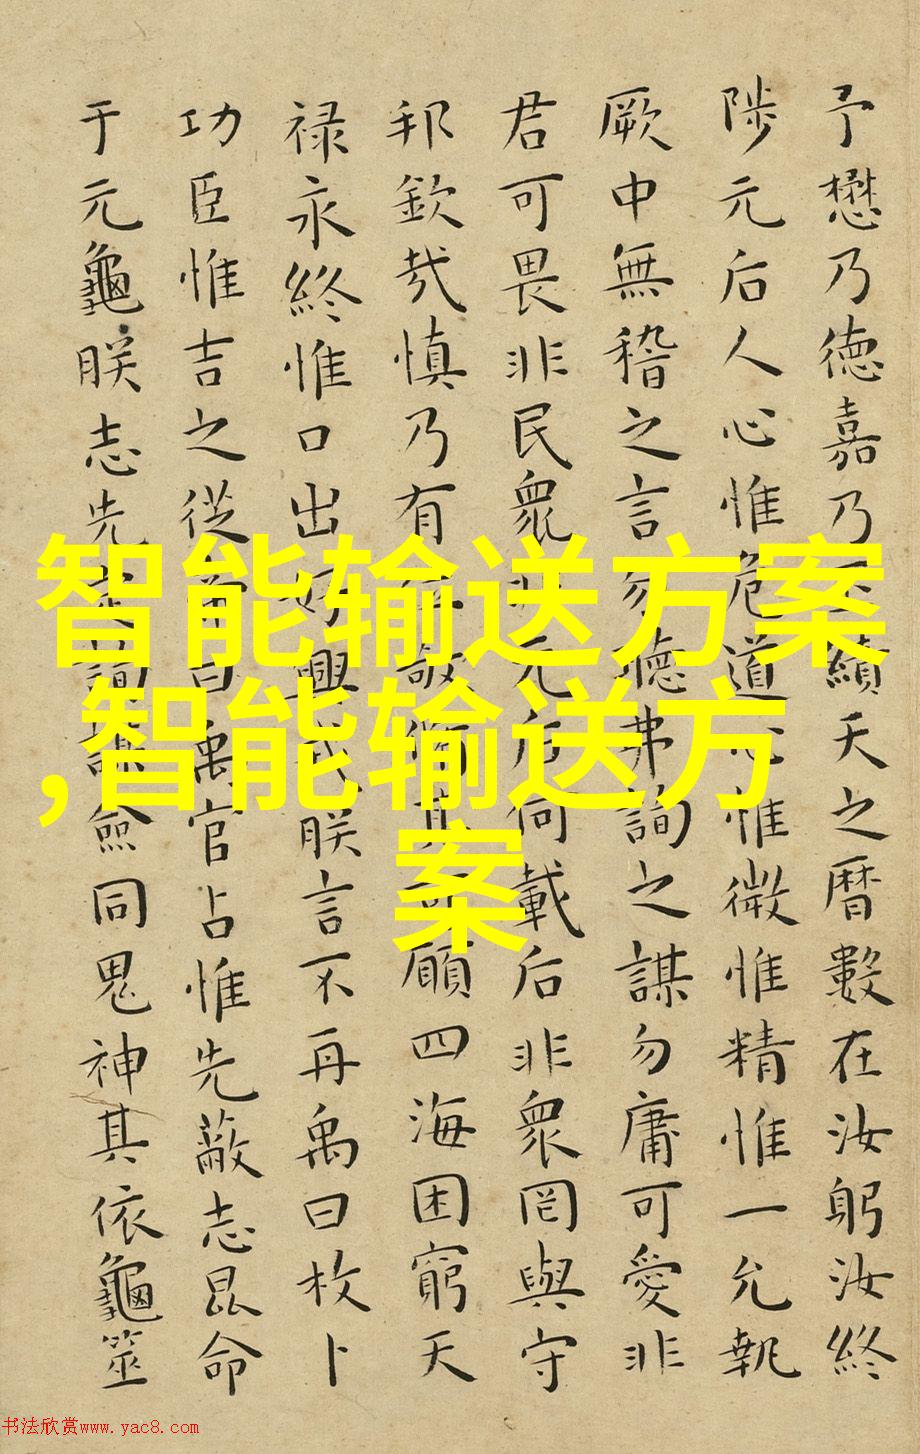 予懋乃德嘉乃丕績天之曆數在汝躬汝終
陟元后人心惟危道心惟微惟精惟一允執
厥中無稽之言勿聽弗詢之謀勿庸可愛非
君可畏非民衆非元后何載后非衆罔與守
邦欽哉慎乃有位敬脩其可願四海困窮天
禄永終惟口出好興戎朕言不再禹曰枚卜
功臣惟吉之從帝曰禹官占惟先蔽志昆命
于元龜朕志先定詢謀僉同鬼神其依龜筮
智能输送方案
,智能输送方
案
书法欣赏www.yac8.com